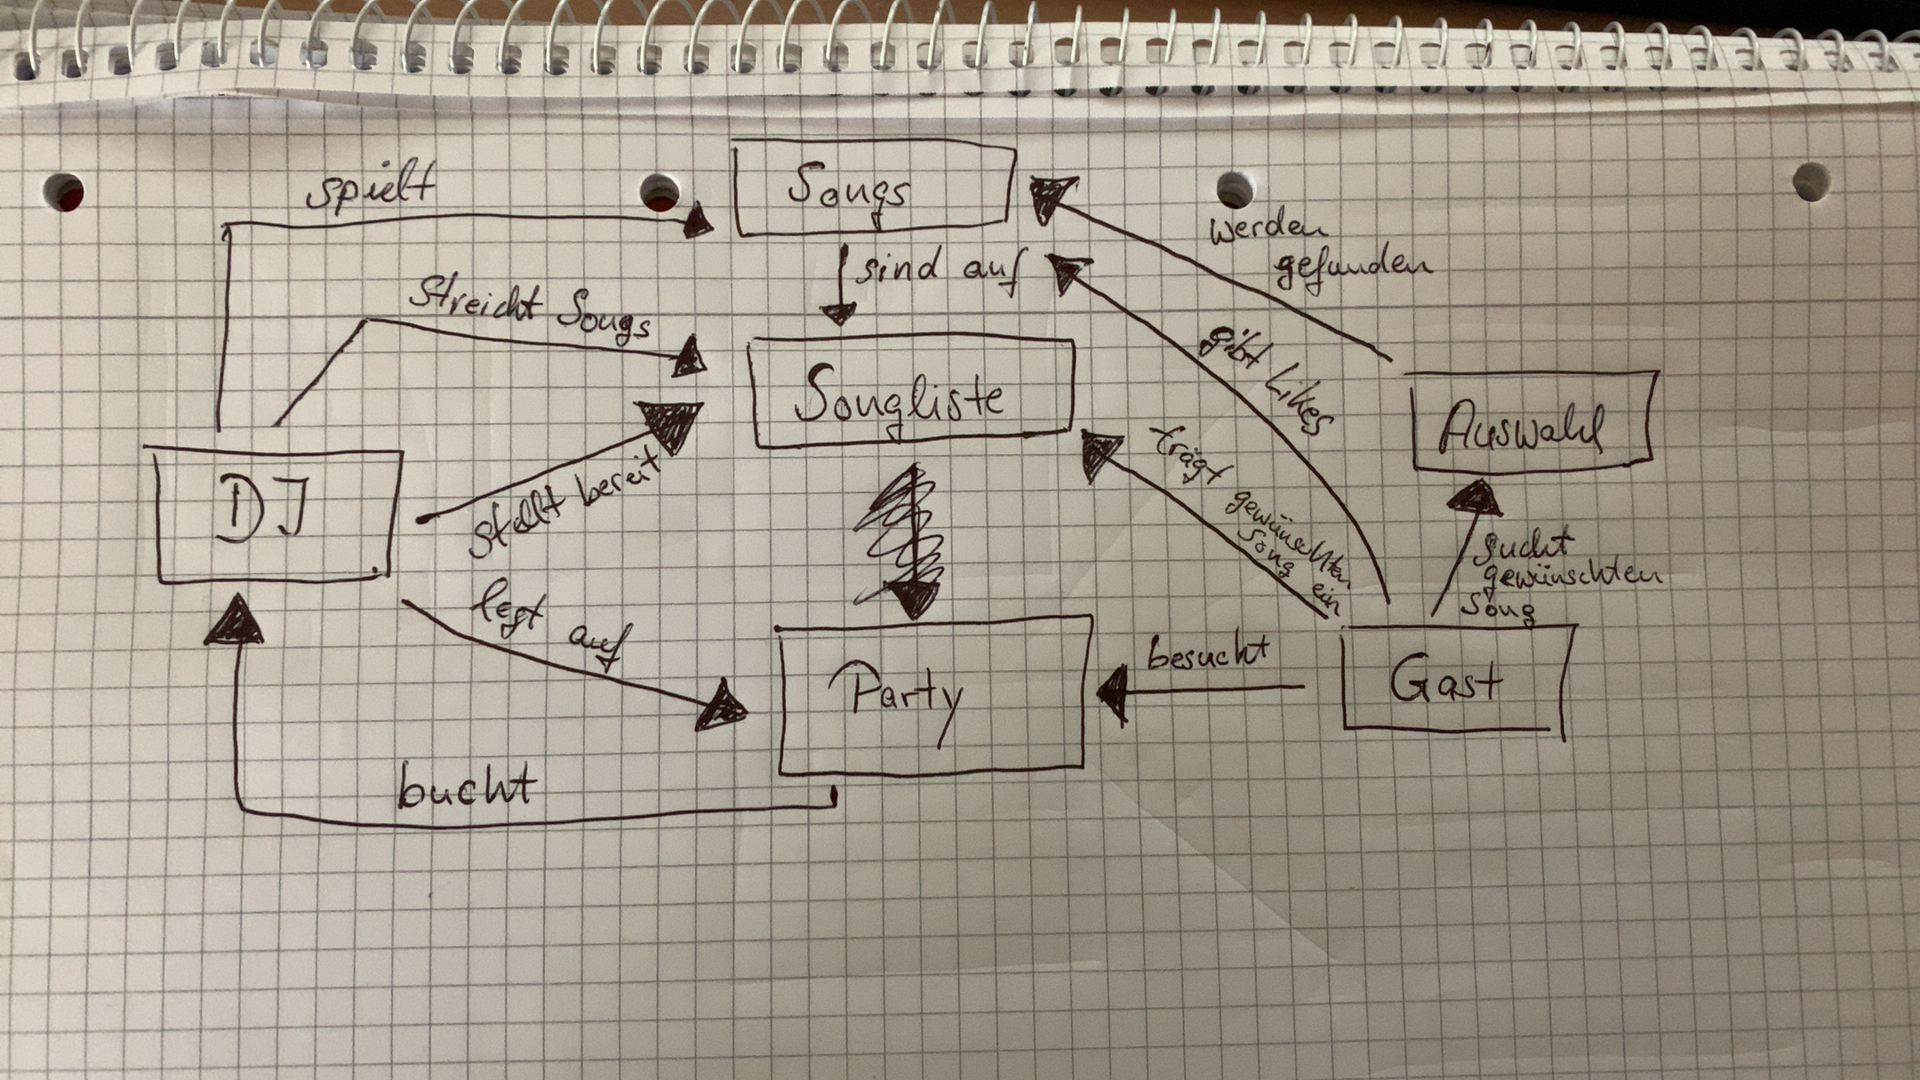 spielt
Songs
werden
gefunden
sind auf
Streicht Songs
gibt Likes
Songliste
Auswahl
trägt gewünschten
Song ein
DJ
stellt bereit
sucht
gewünschten
Song
legt auf
besucht
Party
Gast
bucht